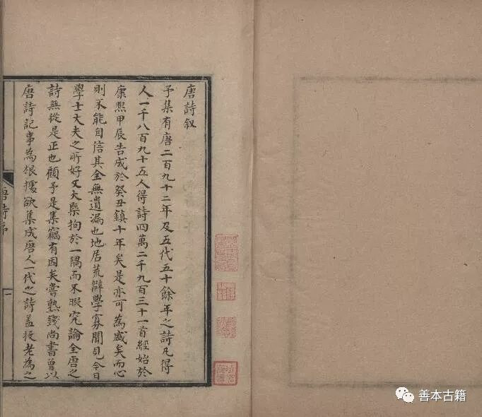 唐詩叙
予集有唐二百九十二年及五代五十餘年之詩凡得
人一千八百九十五人得詩四萬二千九百三十一首經始於
康熙甲辰告成於癸丑鎮十年矣是亦可為盛矣而心
則未能自信其全無遺漏也地居荒僻學寡聞見今日
學士大夫之所好又大槩拘於一隅而未暇究論全唐之
詩無從是正也顧予是集竊有因矣嘗熟錢尚書曾以
唐詩記事為根據欲集成唐人一代之詩蓋投老為之
唐詩序
一
善本古籍